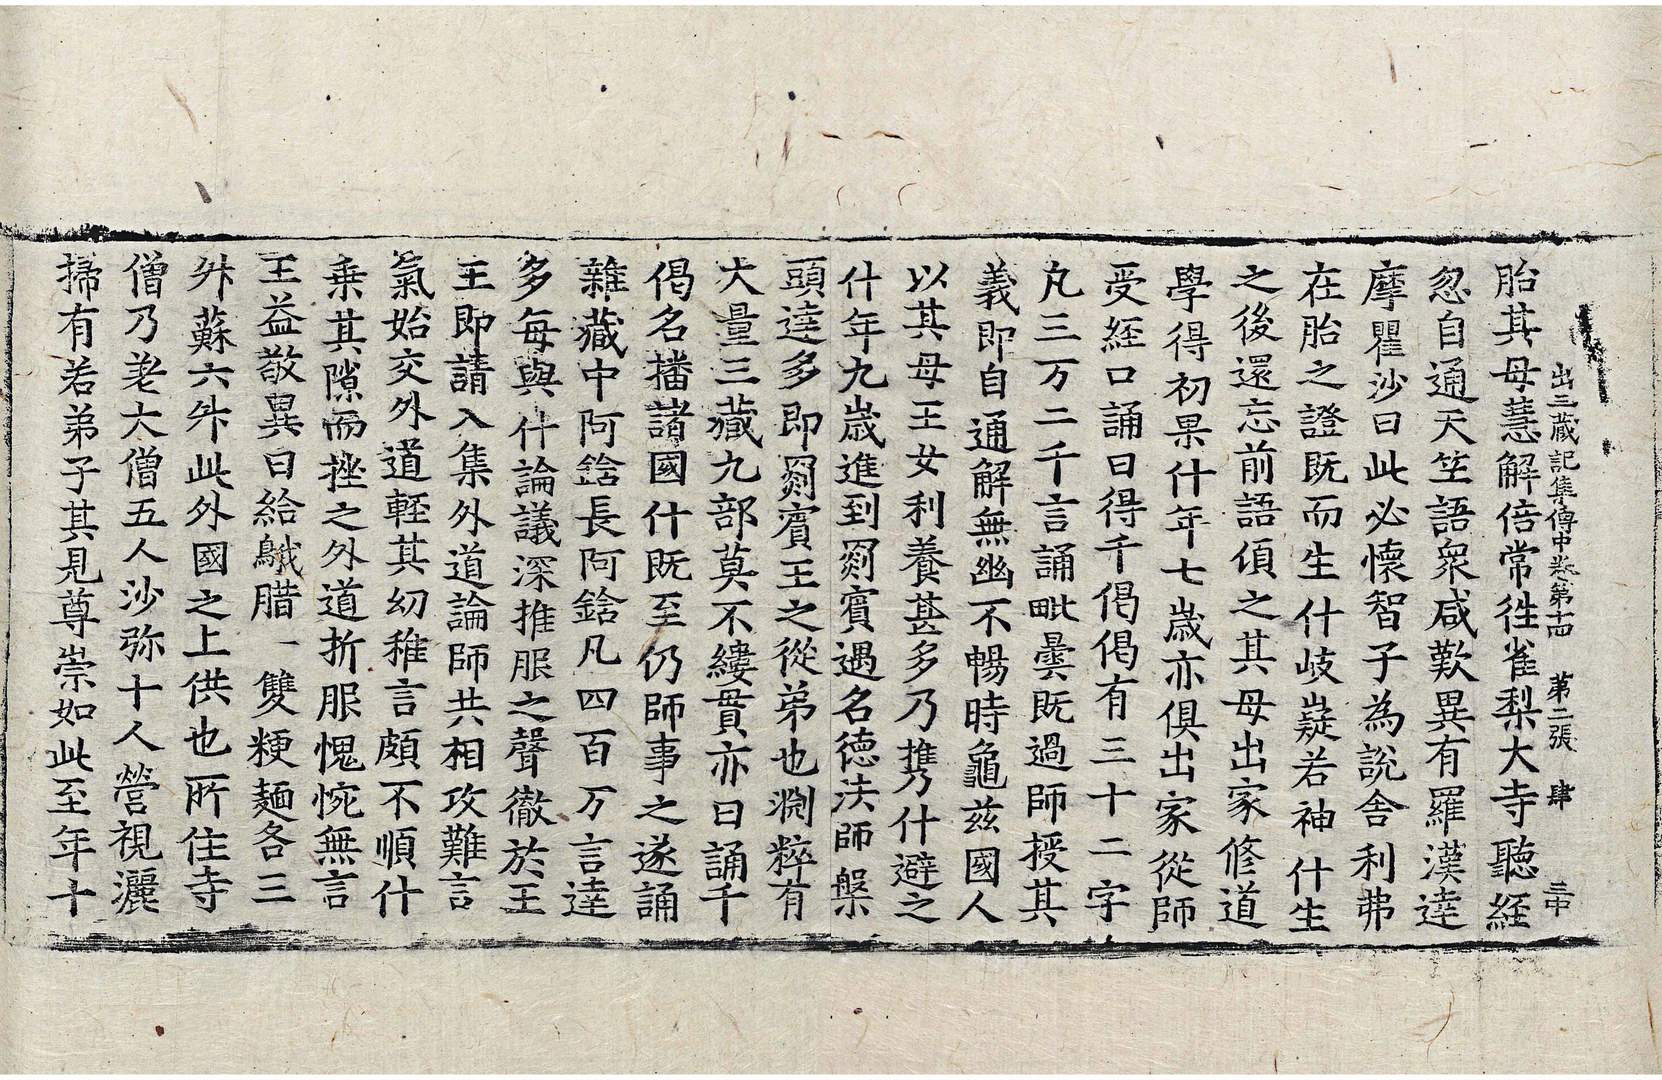 出三藏記集傳中卷第十四　第二張　肆
胎其母慧解倍常往雀梨大寺聽經
忽自通天竺語衆咸歎異有羅漢達
摩瞿沙曰此必懷智子為說舍利弗
在胎之證既而生什岐嶷若神什生
之後還忘前語傾之其母出家修道
學得初果什年七歲亦俱出家從師
受經口誦日得千偈偈有三十二字
凡三万二千言誦毗曇既過師授其
義即自通解無幽不暢時龜茲國人
以其母王女利養甚多乃携什避之
什年九歲進到罽賓遇名德法師槃
頭達多即罽賓王之從弟也淵粹有
大量三藏九部莫不縷貫亦日誦千
偈名播諸國什既至仍師事之遂誦
雜藏中阿鋡長阿鋡凡四百万言達
多每與什論議深推服之聲徹於王
王即請入集外道論師共相攻難言
氣始交外道輕其幼稚言頗不順什
乗其隙而挫之外道折服愧惋無言
王益敬異日給鵝腊一雙粳麵各三
舛蘇六舛此外國之上供也所住寺
僧乃差大僧五人沙弥十人營視灑
掃有若弟子其見尊崇如此至年十